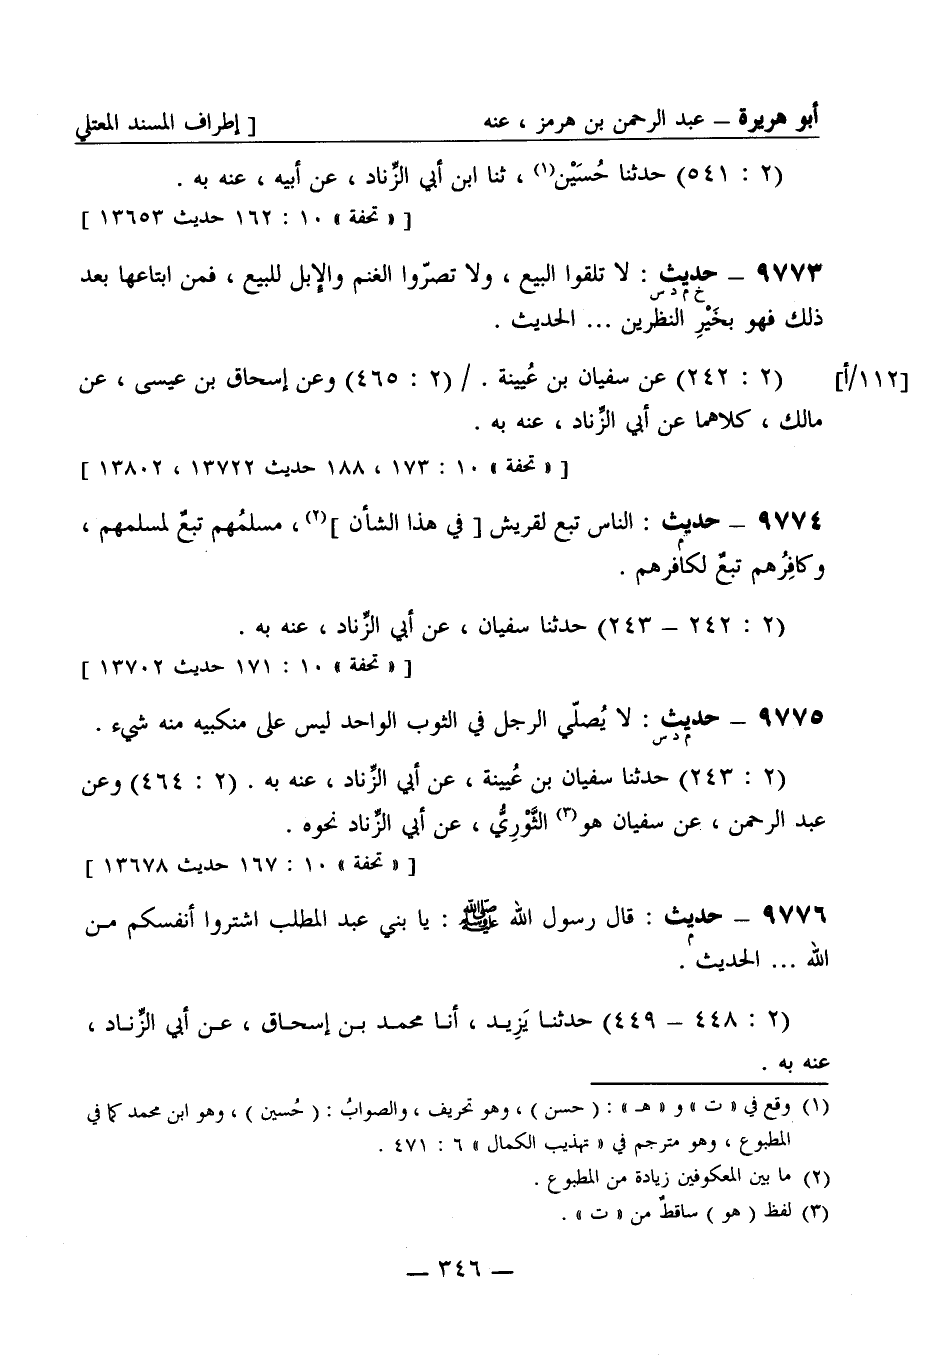 أبو هريرة ــ عبد الرحمن بن هرمز ، عنه [ إطراف المسند المعتلي
(٢ : ٥٤١) حدثنا حُسَيْن(١) ، ثنا ابن أبي الزِّناد ، عن أبيه ، عنه به .
[ « تحفة » ١٠ : ١٦٢ حديث ١٣٦٥٣ ]
٩٧٧٣ ــ حديث : لا تلقوا البيع ، ولا تصرّوا الغنم والإبل للبيع ، فمن ابتاعها بعد
خ م د س
ذلك فهو بخَيْرِ النظرين ... الحديث .
[١١٢/أ] (٢ : ٢٤٢) عن سفيان بن عُيينة . / (٢ : ٤٦٥) وعن إسحاق بن عيسى ، عن
مالك ، كلاهما عن أبي الزِّناد ، عنه به .
[ « تحفة » ١٠ : ١٧٣ ، ١٨٨ حديث ١٣٧٢٢ ، ١٣٨٠٢ ]
٩٧٧٤ ــ حديث : الناس تبع لقريش [ في هذا الشأن ](٢) ، مسلمُهم تبعٌ لمسلمهم ،
م
وكافِرُهم تبعٌ لكافرهم .
(٢ : ٢٤٢ ــ ٢٤٣) حدثنا سفيان ، عن أبي الزِّناد ، عنه به .
[ « تحفة » ١٠ : ١٧١ حديث ١٣٧٠٢ ]
٩٧٧٥ ــ حديث : لا يُصلّي الرجل في الثوب الواحد ليس على منكبيه منه شيء .
م د س
(٢ : ٢٤٣) حدثنا سفيان بن عُيينة ، عن أبي الزِّناد ، عنه به . (٢ : ٤٦٤) وعن
عبد الرحمن ، عن سفيان هو(٣) الثَّوْرِيُّ ، عن أبي الزِّناد نحوه .
[ « تحفة » ١٠ : ١٦٧ حديث ١٣٦٧٨ ]
٩٧٧٦ ــ حديث : قال رسول الله ﷺ : يا بني عبد المطلب اشتروا أنفسكم من
م
الله ... الحديث .
(٢ : ٤٤٨ ــ ٤٤٩) حدثنا يَزِيد ، أنا محمد بن إسحاق ، عن أبي الزِّناد ،
عنه به .
(١) وقع في « ت » و « هـ » : ( حسن ) ، وهو تحريف ، والصوابُ : ( حُسين ) ، وهو ابن محمد كما في
المطبوع ، وهو مترجم في « تهذيب الكمال » ٦ : ٤٧١ .
(٢) ما بين المعكوفين زيادة من المطبوع .
(٣) لفظ ( هو ) ساقطٌ من « ت » .
ــ ٣٤٦ ــ